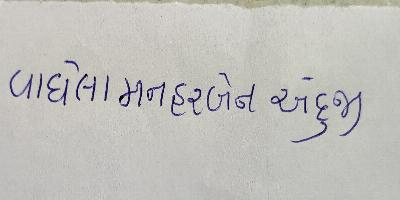 વાઘેલા મનહરબેન ચંદુજી